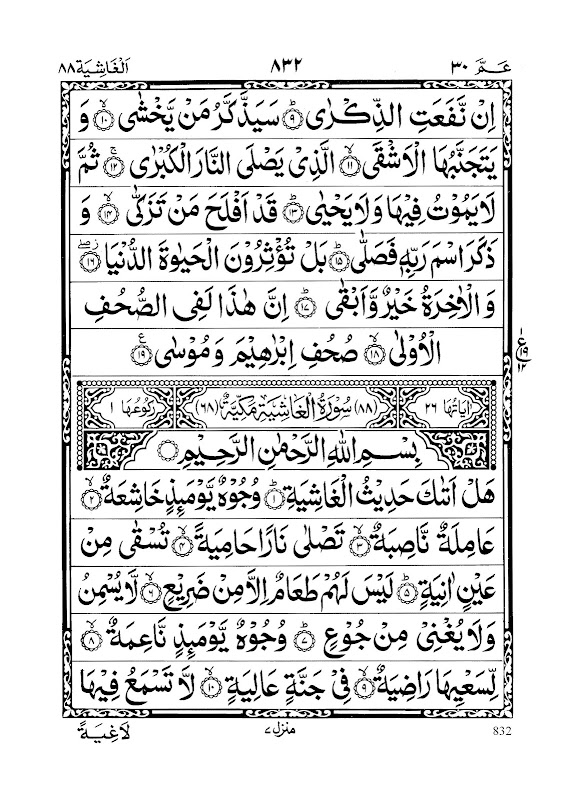 عـمّ ٣٠ ٨٣٢ الغاشية ٨٨
اِنْ نَّفَعَتِ الذِّكْرٰى ۹ سَيَذَّكَّرُ مَنْ يَّخْشٰى ۱۰ وَ
يَتَجَنَّبُهَا الْاَشْقَى ۱۱ الَّذِىْ يَصْلَى النَّارَ الْكُبْرٰى ۱۲ ثُمَّ
لَا يَمُوْتُ فِيْهَا وَ لَا يَحْيٰى ۱۳ قَدْ اَفْلَحَ مَنْ تَزَكّٰى ۱۴ وَ
ذَكَرَ اسْمَ رَبِّهٖ فَصَلّٰى ۱۵ بَلْ تُؤْثِرُوْنَ الْحَيٰوةَ الدُّنْيَا ۱۶
وَ الْاٰخِرَةُ خَيْرٌ وَّ اَبْقٰى ۱۷ اِنَّ هٰذَا لَفِى الصُّحُفِ
الْاُوْلٰى ۱۸ صُحُفِ اِبْرٰهِيْمَ وَ مُوْسٰى ۱۹
ع ۱ ۱۹ ۱۲
اٰيَاتُهَا ٢٦ (٨٨) سُوْرَةُ الْغَاشِيَةِ مَكِّيَّةٌ (٦٨) رُكُوْعُهَا ١
بِسْمِ اللّٰهِ الرَّحْمٰنِ الرَّحِيْمِ
هَلْ اَتٰىكَ حَدِيْثُ الْغَاشِيَةِ ۱ وُجُوْهٌ يَّوْمَئِذٍ خَاشِعَةٌ ۲
عَامِلَةٌ نَّاصِبَةٌ ۳ تَصْلٰى نَارًا حَامِيَةً ۴ تُسْقٰى مِنْ
عَيْنٍ اٰنِيَةٍ ۵ لَيْسَ لَهُمْ طَعَامٌ اِلَّا مِنْ ضَرِيْعٍ ۶ لَّا يُسْمِنُ
وَ لَا يُغْنِىْ مِنْ جُوْعٍ ۷ وُجُوْهٌ يَّوْمَئِذٍ نَّاعِمَةٌ ۸
لِّسَعْيِهَا رَاضِيَةٌ ۹ فِىْ جَنَّةٍ عَالِيَةٍ ۱۰ لَّا تَسْمَعُ فِيْهَا
832 منزل ٧ لَاغِيَةً